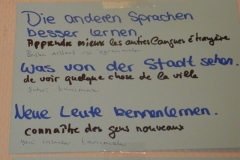 Die anderen Sprachen
besser lernen.
Apprendre mieux les autres langues étrangère
Was von der Stadt sehen.
de voir quelque chose de la ville
Neue Leute kennenlernen.
connaître des gens nouveaux